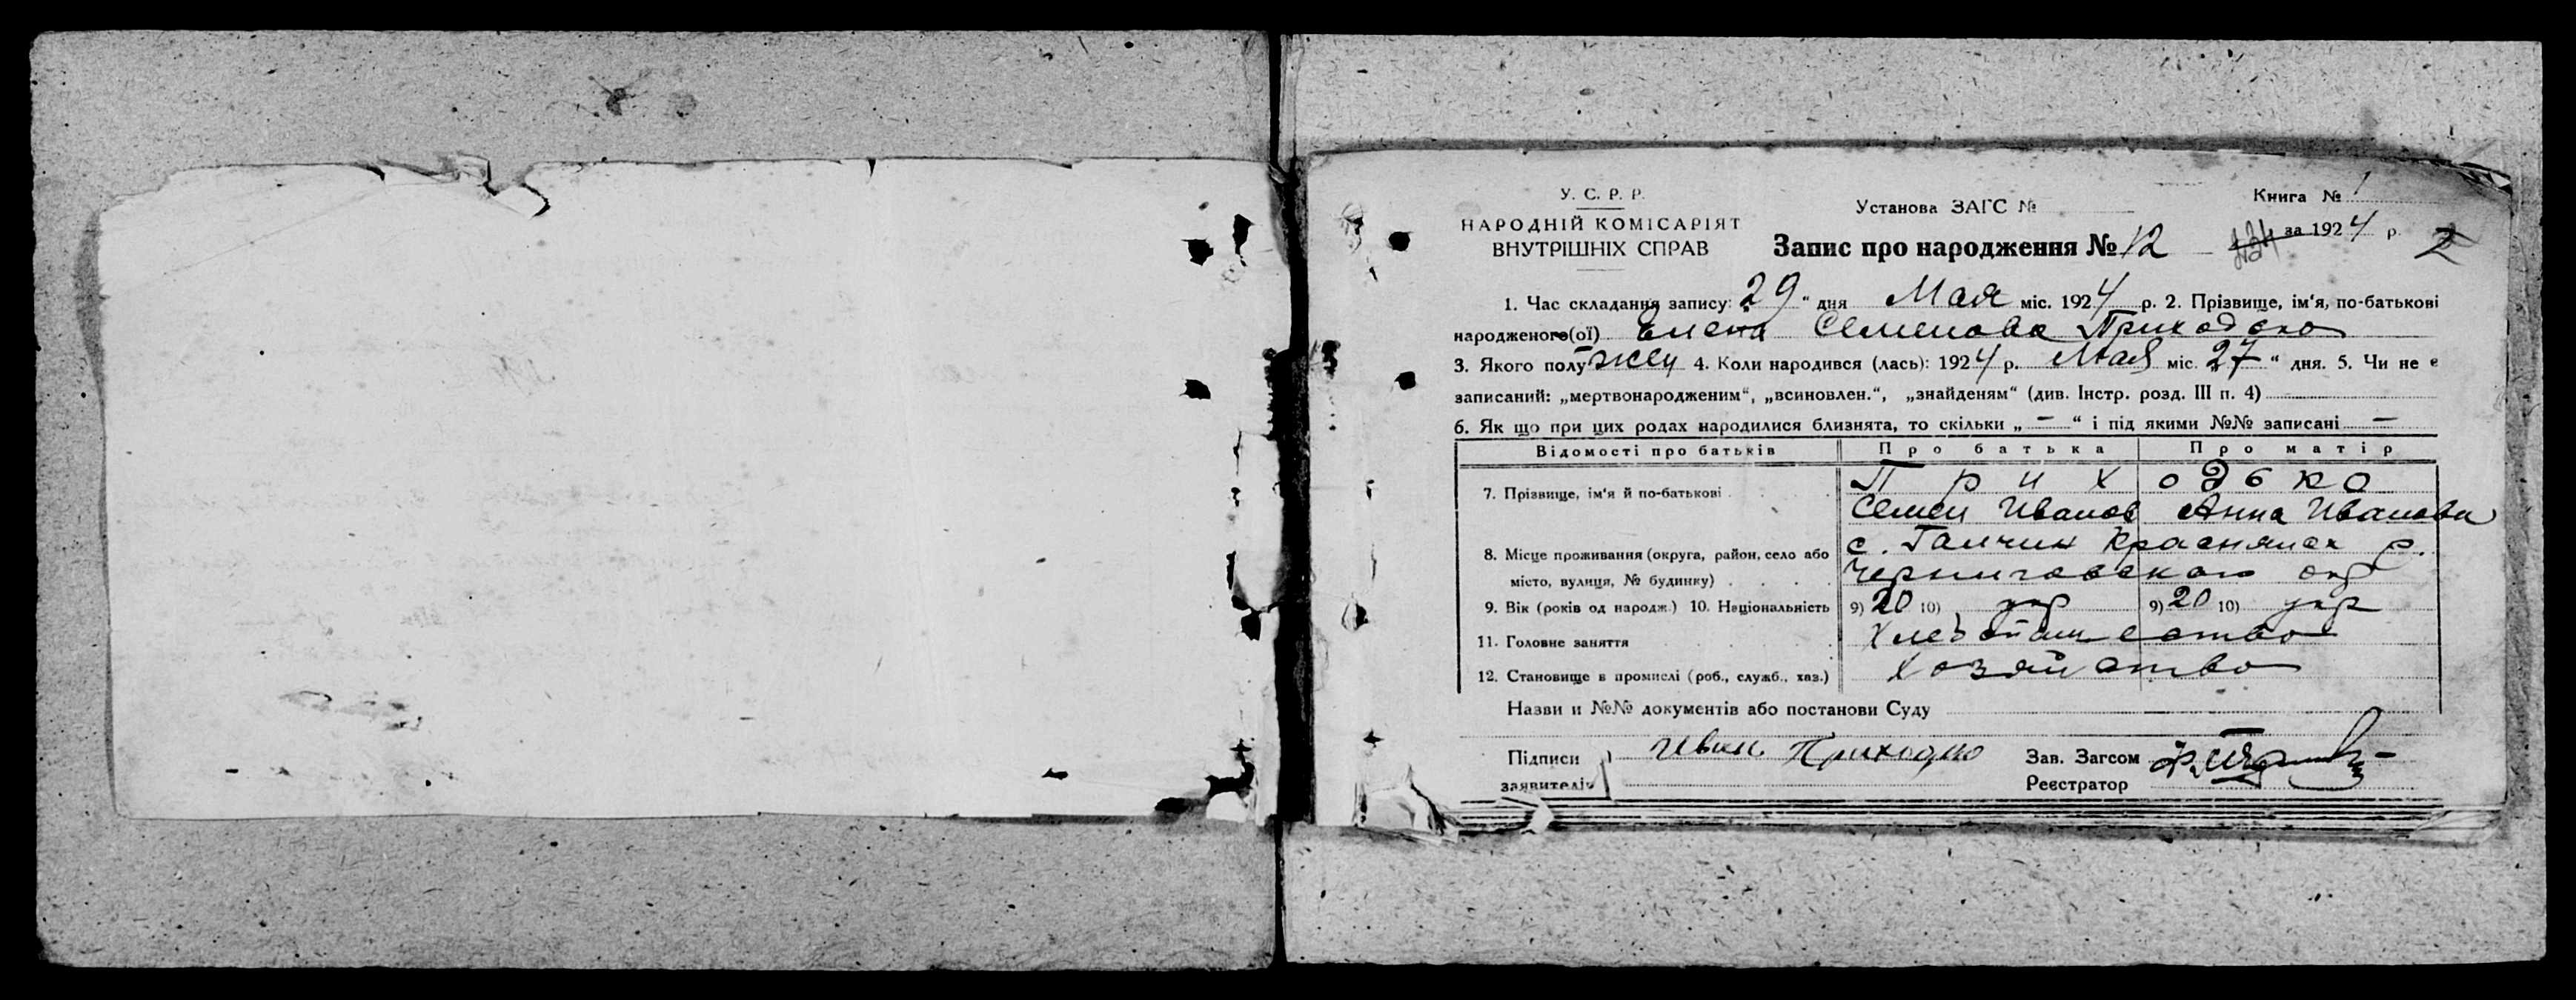 У. С. Р. Р.
НАРОДНІЙ КОМІСАРІЯТ
ВНУТРІШНІХ СПРАВ
Установа ЗАГС №
Запис про народження № 12
Книга № 1
за 1924 р.
2
1. Час складання запису: 29 " дня Мая міс. 1924 р. 2. Прізвище, ім'я, по-батькові
народженого(ої) Елена Семенова Приходько
3. Якого полу жен 4. Коли народився (лась): 1924 р. Мая міс. 27 " дня. 5. Чи не є
записаний: „мертвонародженим", „всиновлен.", „знайденям" (див. Інстр. розд. III п. 4)
6. Як що при цих родах народилися близнята, то скільки „ — " і під якими №№ записані —
Відомості про батьків Про батька Про матір
7. Прізвище, ім'я й по-батькові Приходько
Семен Иванов Анна Иванова
8. Місце проживання (округа, район, село або с. Галчин Краснянск р.
місто, вулиця, № будинку) Черниговского окр
9. Вік (років од народж.) 10. Національність 9) 20 10) укр 9) 20 10) укр
11. Головне заняття Хлебопашество
12. Становище в промислі (роб., служб., хаз.) хозяйство
Назви и №№ документів або постанови Суду
Підписи Иван Приходко Зав. Загсом
заявителів Реєстратор